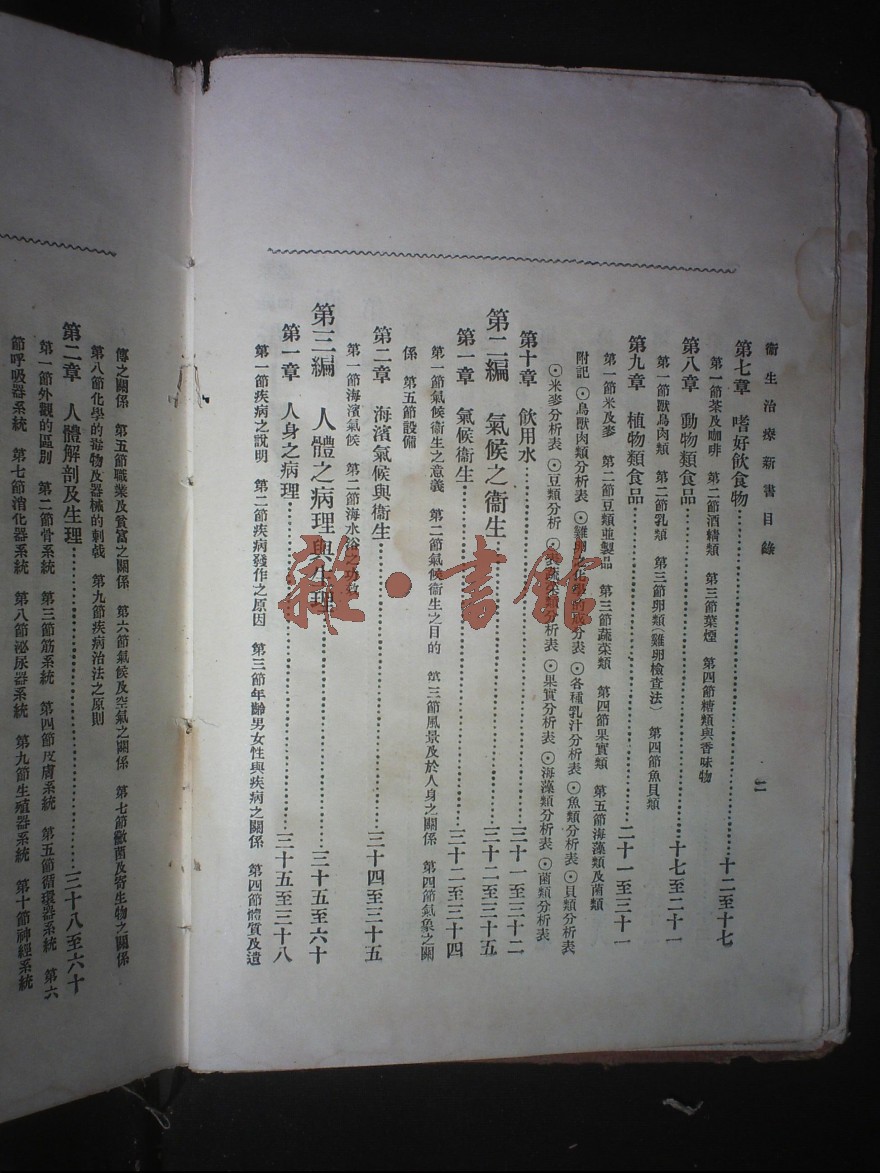 衞生治療新書目錄
二
第七章 嗜好飲食物 十二至十七
第一節茶及咖啡 第二節酒精類 第三節葉煙 第四節糖類與香味物
第八章 動物類食品 十七至二十一
第一節獸鳥肉類 第二節乳類 第三節卵類(雞卵檢查法) 第四節魚貝類
第九章 植物類食品 二十一至三十一
第一節米及麥 第二節豆類並製品 第三節蔬菜類 第四節果實類 第五節海藻類及菌類
附記 ⊙鳥獸肉類分析表 ⊙雞卵之化學的成分表 ⊙各種乳汁分析表 ⊙魚類分析表 ⊙貝類分析表
⊙米麥分析表 ⊙豆類分析 ⊙蔬菜類分析表 ⊙果實分析表 ⊙海藻類分析表 ⊙菌類分析表
第十章 飲用水 三十一至三十二
第二編 氣候之衞生 三十二至三十五
第一章 氣候衞生 三十二至三十四
第一節氣候衞生之意義 第二節氣候衞生之目的 第三節風景及於人身之關係 第四節氣象之關
係 第五節設備
第二章 海濱氣候與衞生 三十四至三十五
第一節海濱氣候 第二節海水浴之功效
第三編 人體之病理與生理 三十五至六十
第一章 人身之病理 三十五至三十八
第一節疾病之說明 第二節疾病發作之原因 第三節年齡男女性與疾病之關係 第四節體質及遺
傳之關係 第五節職業及貧富之關係 第六節氣候及空氣之關係 第七節黴菌及寄生物之關係
第八節化學的毒物及器械的刺戟 第九節疾病治法之原則
第二章 人體解剖及生理 三十八至六十
第一節外觀的區別 第二節骨系統 第三節筋系統 第四節皮膚系統 第五節循環器系統 第六
節呼吸器系統 第七節消化器系統 第八節泌尿器系統 第九節生殖器系統 第十節神經系統
雜·書館